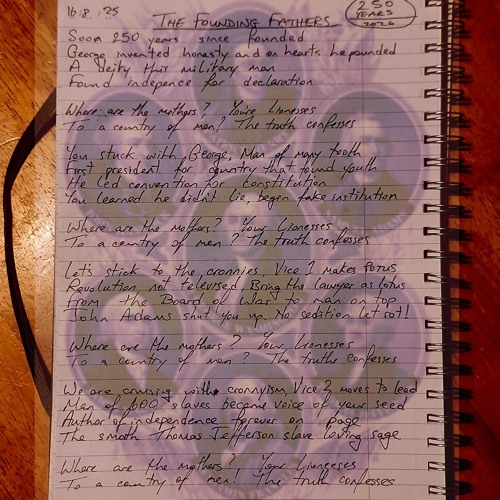 16.8.'25
THE FOUNDING FATHERS
250
YEARS
2026
Soon 250 years since founded
George invented honesty and on hearts he pounded
A deity this military man
Found indepence for declaration
Where are the mothers? You're Lionesses
To a country of men? The truth confesses
You stuck with, George, Man of many tooth
First president for country that found youth
He led convention for constitution
You learned he didn't lie, begin fake institution
Where are the mothers? Your Lionesses
To a country of men? The truth confesses
Let's stick to the cronnies, Vice 1 makes POTUS
Revolution not televised, Bring the lawyer as lotus
From the Board of War to man on top
John Adams shut you up. No sedition let rot!
Where are the mothers? Your Lionesses
To a country of men? The truths confesses
We are crusing with cronnyism, Vice 2 moves to lead
Man of 600 slaves became voice of your seed
Author of independence forever on page
The smoth Thomas Jefferson slave loving sage
Where are the mothers? Your Lioneeses
To a country of men! The truth confesses